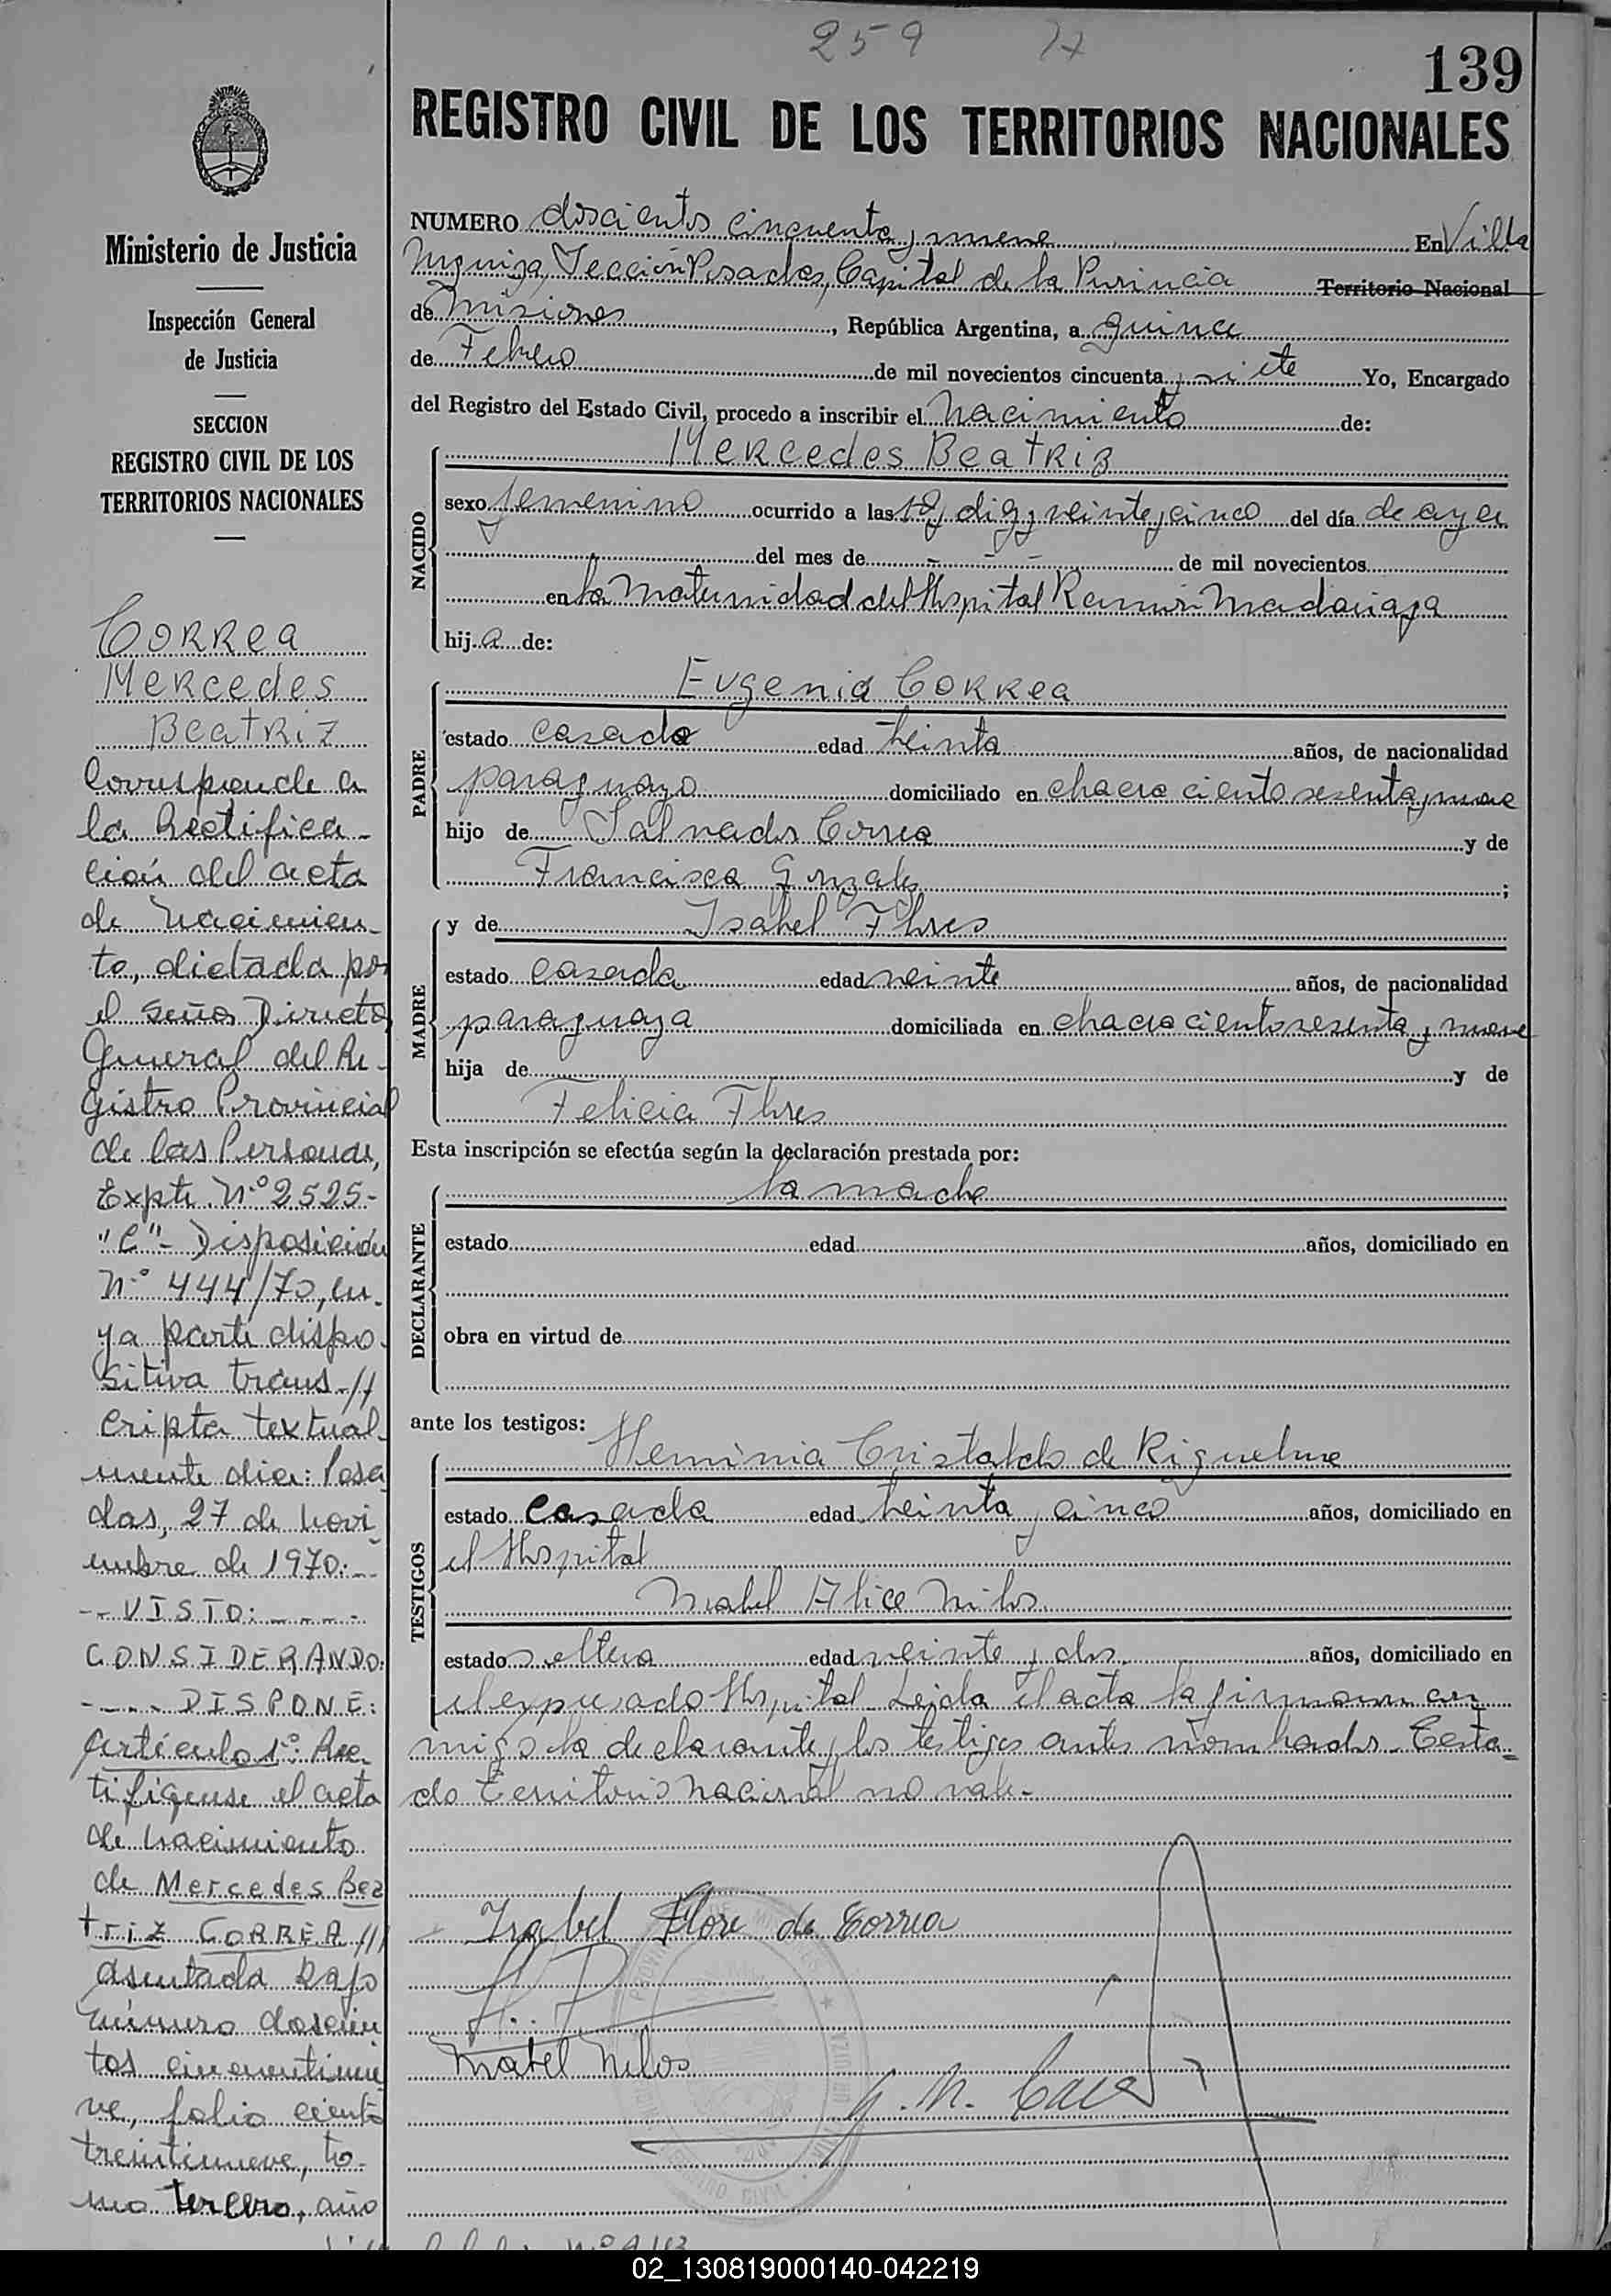 259
139
REGISTRO CIVIL DE LOS TERRITORIOS NACIONALES
Ministerio de Justicia
Inspección General
de Justicia
SECCION
REGISTRO CIVIL DE LOS
TERRITORIOS NACIONALES
Correa
Mercedes
Beatriz
Corresponde a
la Rectifica-
ción del acta
de Nacimien-
to, dictada por
el Señor Director
General del Re-
gistro Provincial
de las Personas,
Expte. Nº 2525-
"C"- Disposición
Nº 444/70, cu-
ya parte dispo-
sitiva trans-//
cripta textual-
mente dice: Posa
das, 27 de novi
embre de 1970:--
-- VISTO: - - - -
CONSIDERANDO:
---- DISPONE:
Artículo 1º: Rec-
tifíquese el acta
de nacimiento
de Mercedes Bea
triz CORREA ///
asentada bajo
número doscien
tos cincuentinue
ve, folio ciento
treintinueve, to-
mo tercero, año
NUMERO doscientos cincuenta y nueve En Villa
Urquiza, Sección Posadas, Capital de la Provincia Territorio Nacional
de Misiones, República Argentina, a quince
de Febrero de mil novecientos cincuenta y siete Yo, Encargado
del Registro del Estado Civil, procedo a inscribir el nacimiento de:
NACIDO
Mercedes Beatriz
sexo femenino ocurrido a las 19 y veinte y cinco del día de ayer
del mes de - - - de mil novecientos
en la Maternidad del Hospital Ramón Madariaga
hija de:
PADRE
Eugenio Correa
estado casado edad treinta años, de nacionalidad
paraguayo domiciliado en chacra ciento sesenta y nueve
hijo de Salvador Correa y de
Francisca Gonzalez;
MADRE
y de Isabel Flores
estado casada edad veinte años, de nacionalidad
paraguaya domiciliada en chacra ciento sesenta y nueve
hija de y de
Felicia Flores
Esta inscripción se efectúa según la declaración prestada por:
DECLARANTE
la madre
estado edad años, domiciliado en
obra en virtud de
ante los testigos:
TESTIGOS
Herminia Cristaldo de Riquelme
estado casada edad treinta y cinco años, domiciliado en
el Hospital
Mabel Alice Milos
estado soltera edad veinte y dos años, domiciliado en
el expresado Hospital. Leida el acta la firman con
migo la declarante y los testigos antes nombrados. Testa-
do Territorio Nacional no vale.-
Isabel Flore de Correa
Mabel Milos
02_130819000140-042219